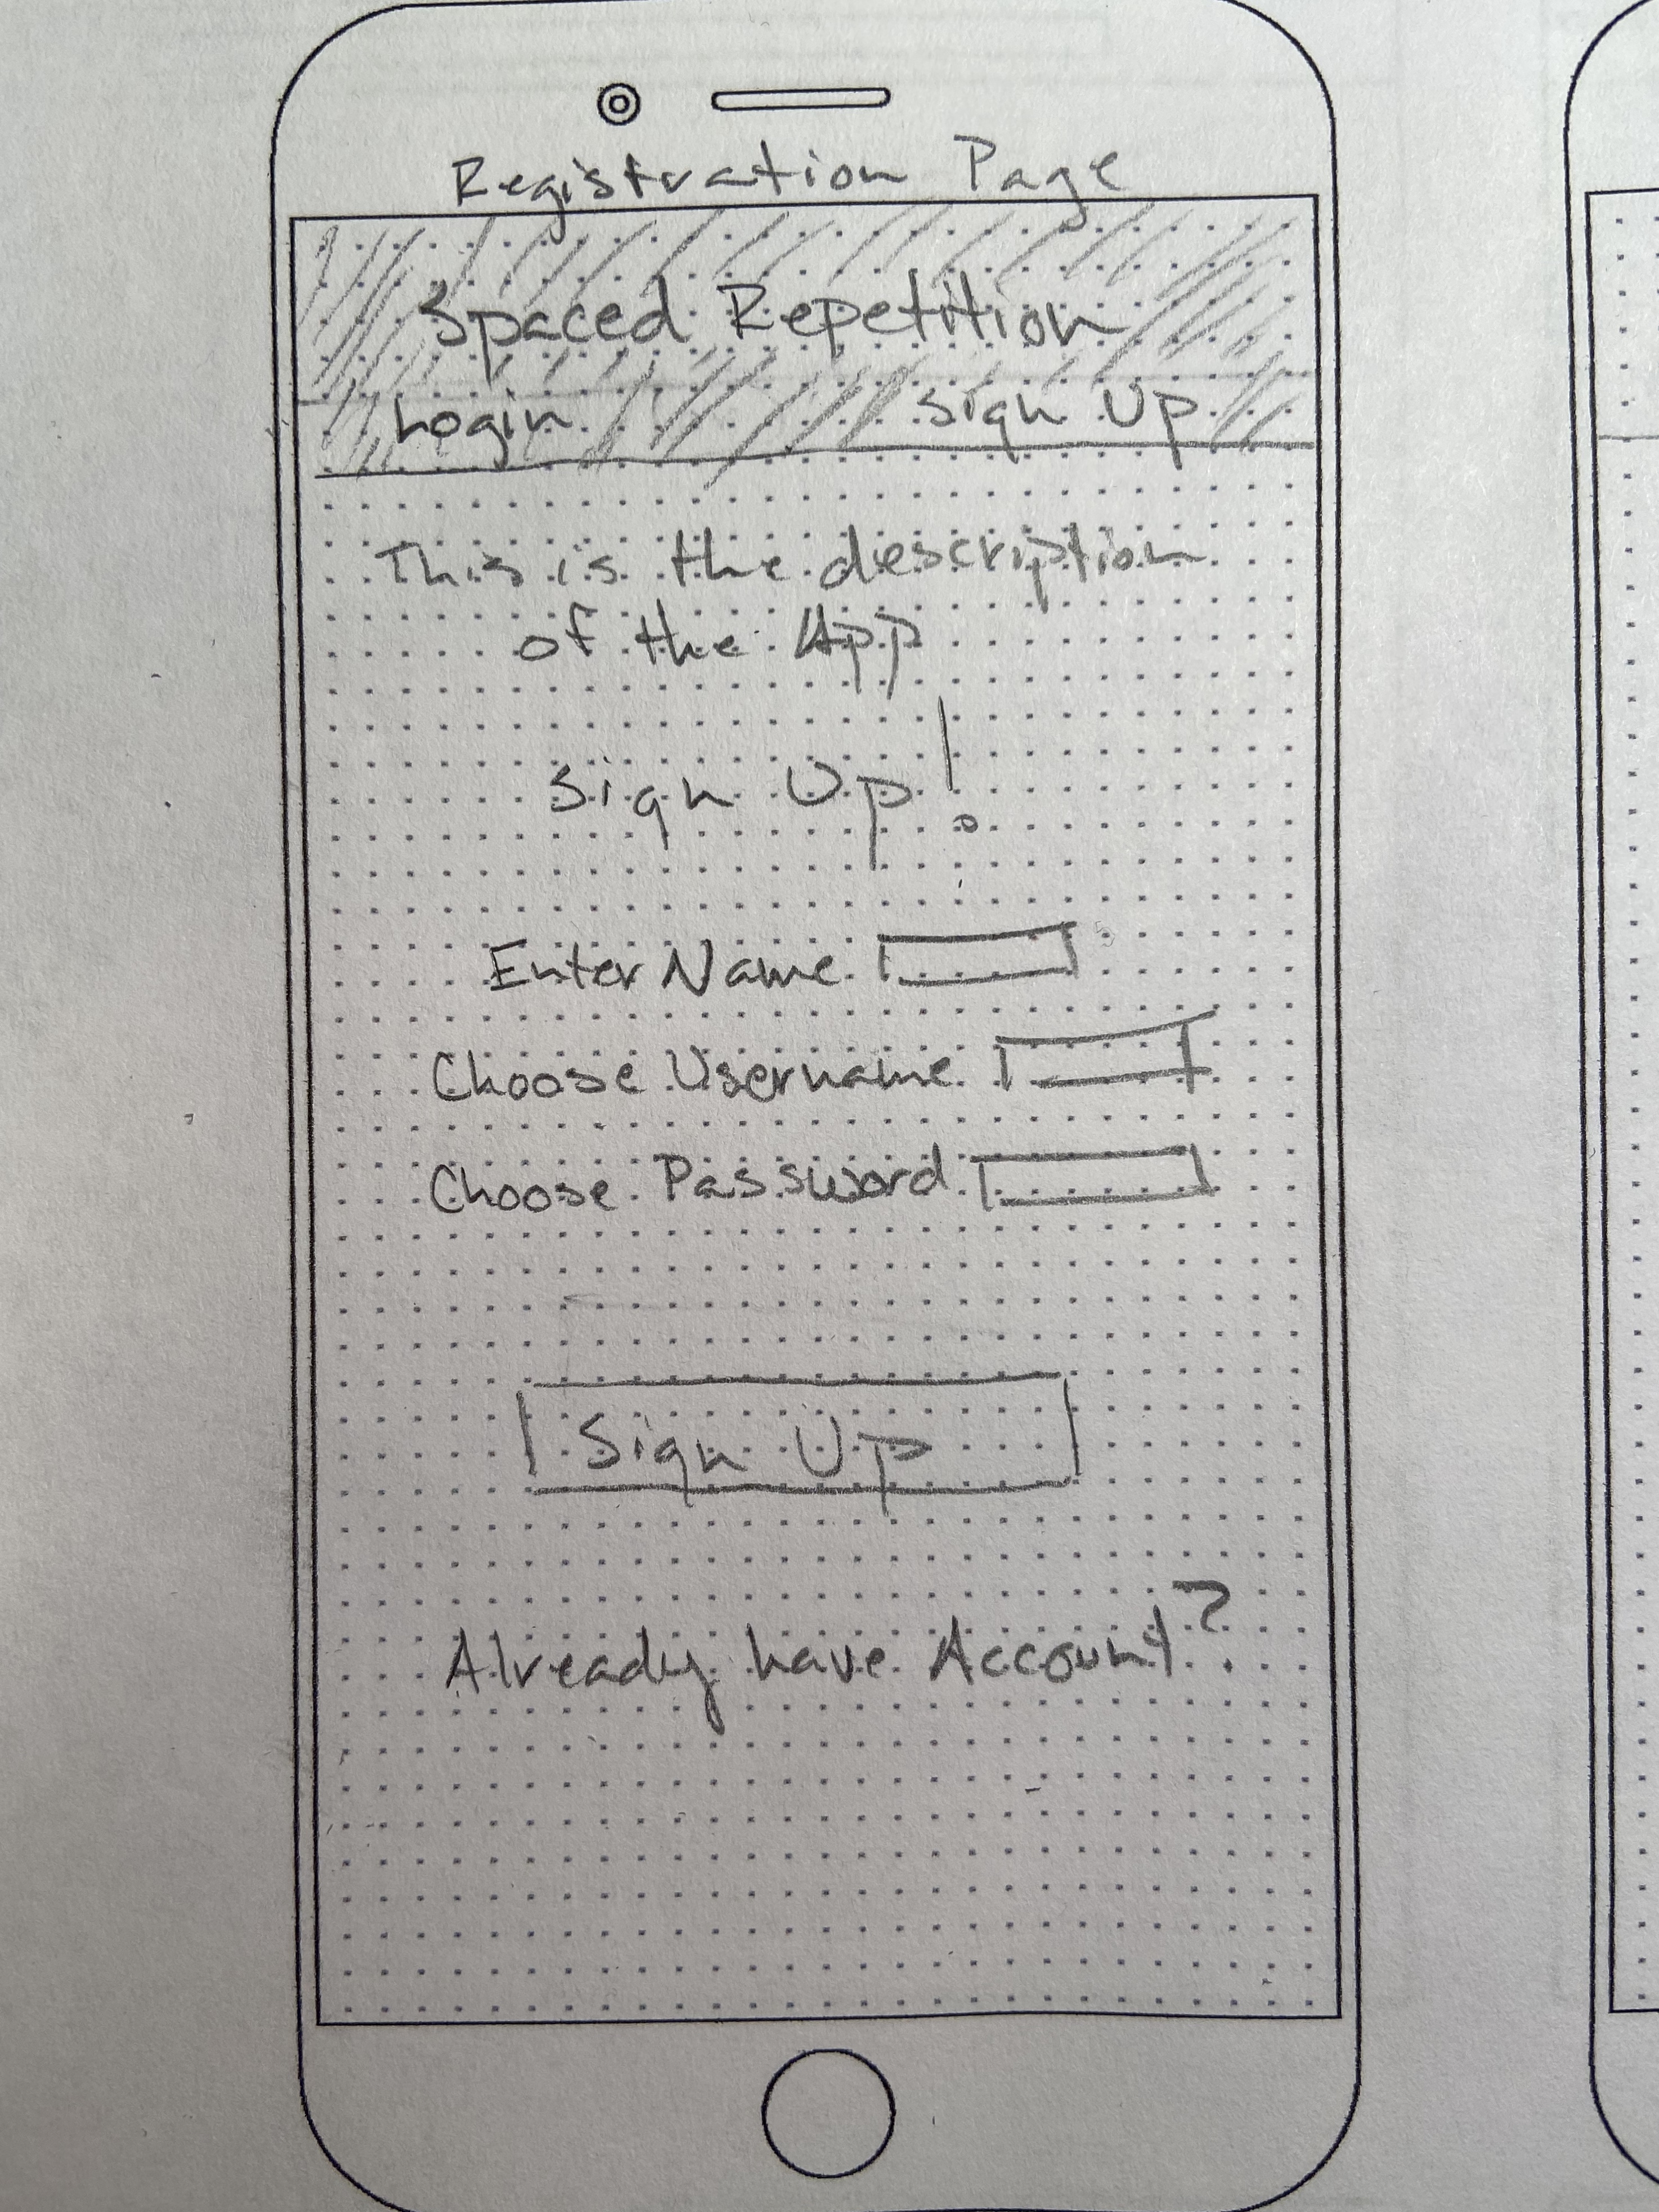 Registration Page
Spaced Repetition
Login Sign Up
This is the description
of the App
Sign Up!
Enter Name
Choose Username
Choose Password
Sign Up
Already have Account?